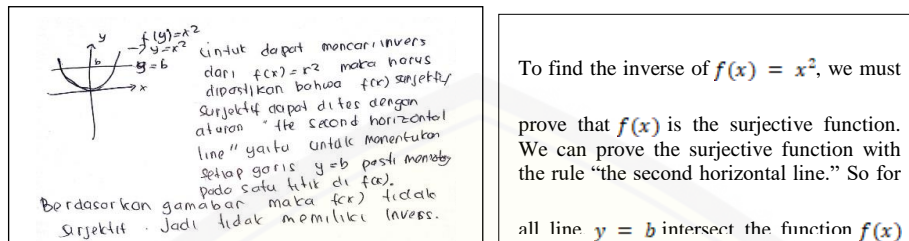 y
f(y)=x²
→ y=x²
y=b
b
x
Untuk dapat mencari invers
dari f(x) = x² maka harus
dipastikan bahwa f(x) surjektif,
surjektif dapat dites dengan
aturan "the second horizontal
line" yaitu untuk menentukan
setiap garis y=b pasti
pada satu titik di f(x).
Berdasarkan gamabar maka f(x) tidak
surjektif. Jadi tidak memiliki invers.
To find the inverse of f(x) = x², we must
prove that f(x) is the surjective function.
We can prove the surjective function with
the rule “the second horizontal line.” So for
all line y = b intersect the function f(x)